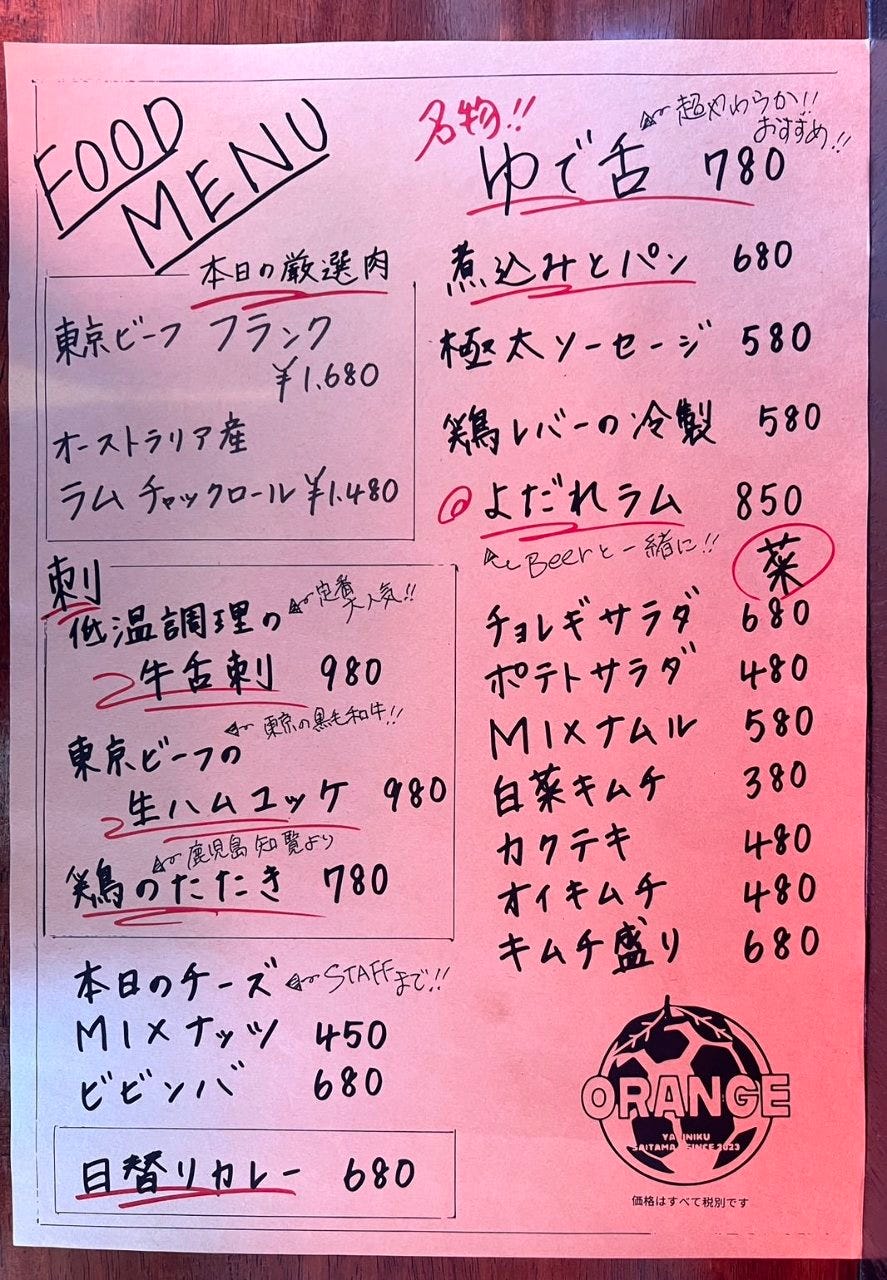 FOOD
MENU
本日の厳選肉
東京ビーフ フランク
¥1.680
オーストラリア産
ラム チャックロール ¥1.480
刺
低温調理の 定番 大人気!!
牛舌刺 980
東京の黒毛和牛!!
東京ビーフの
生ハムユッケ 980
鹿児島知覧より
鶏のたたき 780
本日のチーズ STAFFまで!!
MIXナッツ 450
ビビンバ 680
日替りカレー 680
名物!!
超やわらか!!
おすすめ!!
ゆで舌 780
煮込みとパン 680
極太ソーセージ 580
鶏レバーの冷製 580
よだれラム 850
Beerと一緒に!!
菜
チョレギサラダ 680
ポテトサラダ 480
MIXナムル 580
白菜キムチ 380
カクテキ 480
オイキムチ 480
キムチ盛り 680
ORANGE
YAKINIKU
SAITAMA SINCE 2023
価格はすべて税別です